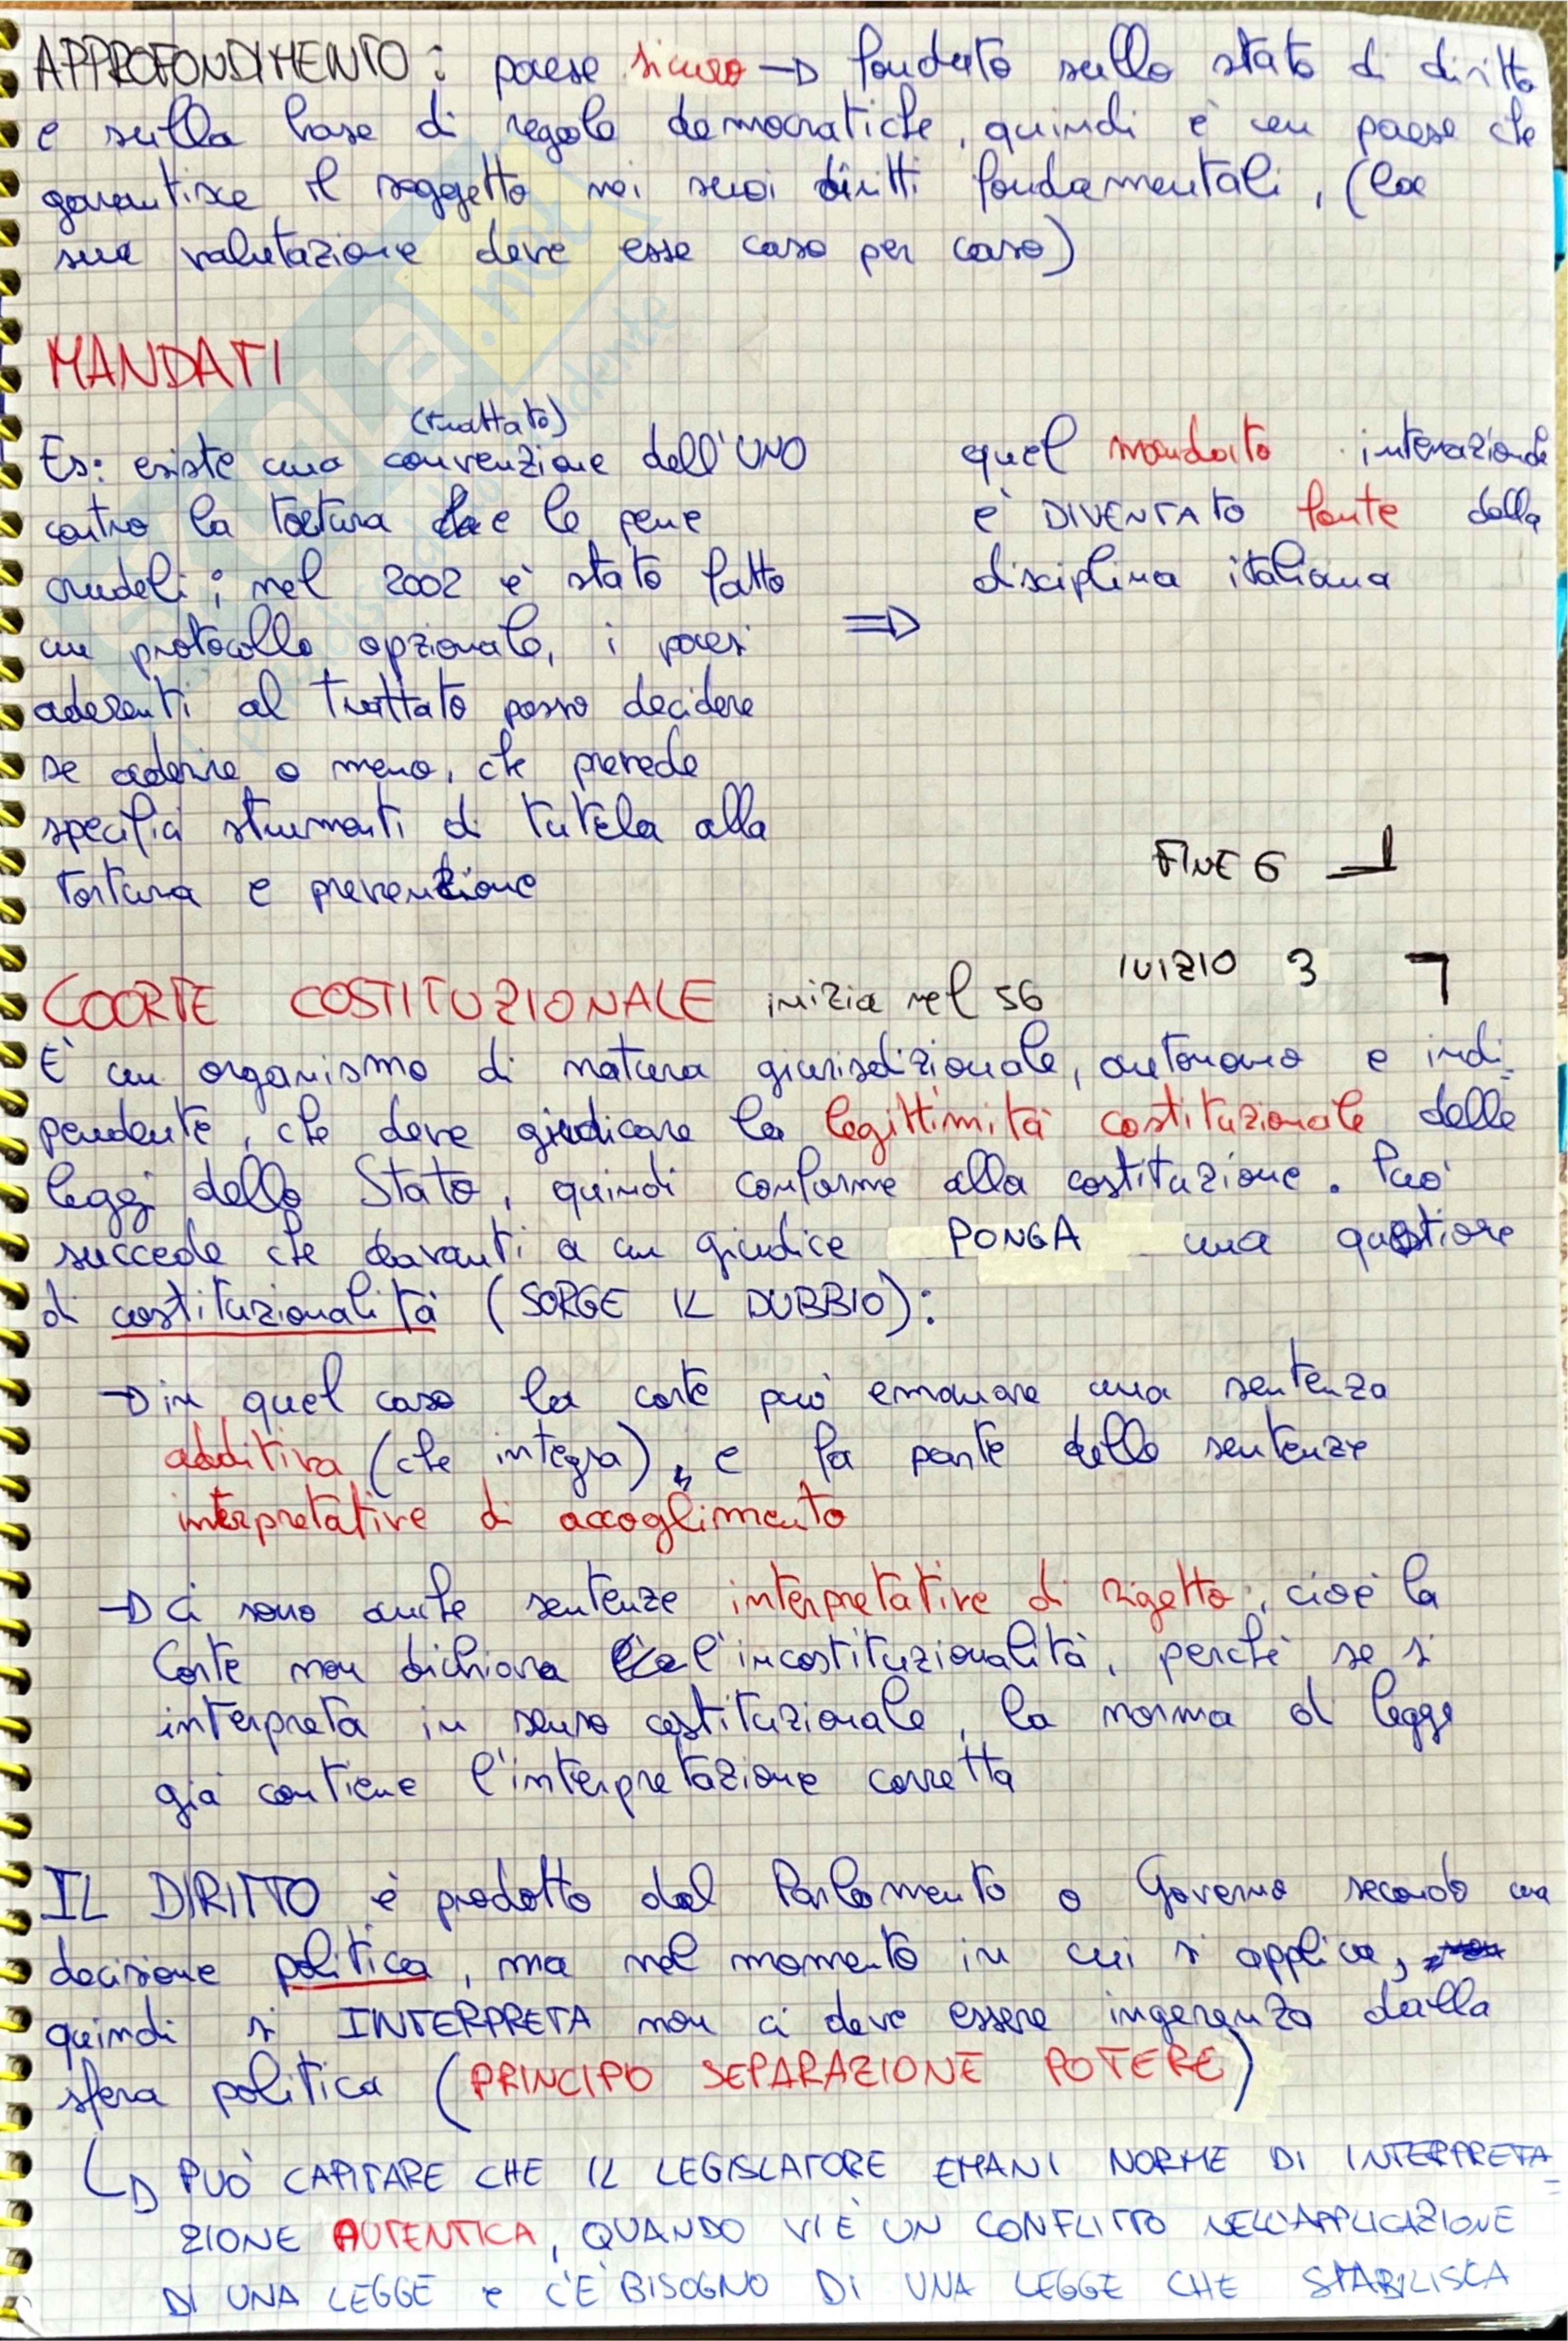 APPROFONDIMENTO: paese sicuro → fondato sullo stato di diritto
e sulla base di regole democratiche, quindi è un paese che
garantisce il soggetto nei suoi diritti fondamentali, (la
sua valutazione deve esse caso per caso)
MANDATI
(trattato)
Es: esiste una convenzione dell'UNO
contro la tortura e le pene
crudeli; nel 2002 è stato fatto
un protocollo opzionale, i paesi
aderenti al trattato posso decidere
se aderire o meno, che prevede
specifici strumenti di tutela alla
tortura e prevenzione
⇒
quel mandato internazionale
è DIVENTATO fonte della
disciplina italiana
FINE 6
INIZIO 3
COORTE COSTITUZIONALE inizia nel 56
E' un organismo di natura giurisdizionale, autonomo e indi-
pendente, che deve giudicare la legittimità costituzionale delle
leggi dello Stato, quindi conforme alla costituzione. Può
succede che davanti a un giudice PONGA una questione
di costituzionalità (SORGE IL DUBBIO):
→ in quel caso la corte può emanare una sentenza
additiva (che integra), e fa parte delle sentenze
interpretative di accoglimento
→ Ci sono anche sentenze interpretative di rigetto, cioè la
Corte non dichiara l'incostituzionalità, perché se si
interpreta in senso costituzionale, la norma di legge
già contiene l'interpretazione corretta
IL DIRITTO è prodotto dal Parlamento o Governo secondo una
decisione politica, ma nel momento in cui si applica,
quindi si INTERPRETA non ci deve essere ingerenza dalla
sfera politica (PRINCIPO SEPARAZIONE POTERE)
↳ PUÒ CAPITARE CHE IL LEGISLATORE EMANI NORME DI INTERPRETA=
ZIONE AUTENTICA, QUANDO VI È UN CONFLITTO NELL'APPLICAZIONE
DI UNA LEGGE e C'È BISOGNO DI UNA LEGGE CHE STABILISCA